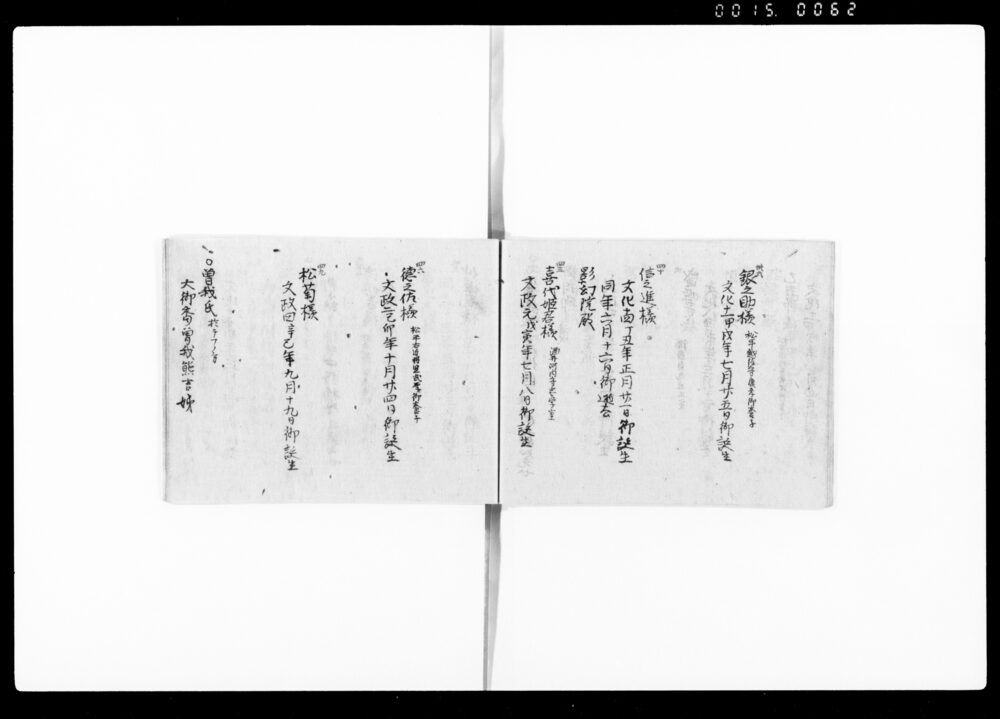 0015.0062
銀之助様 松平越後守康孝御養子
文化十一甲戌年七月廿五日御誕生
四十
信之進様
文化十四丁丑年正月廿一日御誕生
同年六月十六日御逝去
影幻院殿
喜代姫君様
文政元戊寅年七月八日御誕生
四六
徳之佐様 松平右近将監武厚御養子
文政二己卯年十月廿四日御誕生
松菊様
文政四辛巳年九月十九日御誕生
〇曽我氏
大御番曽我熊吉姉